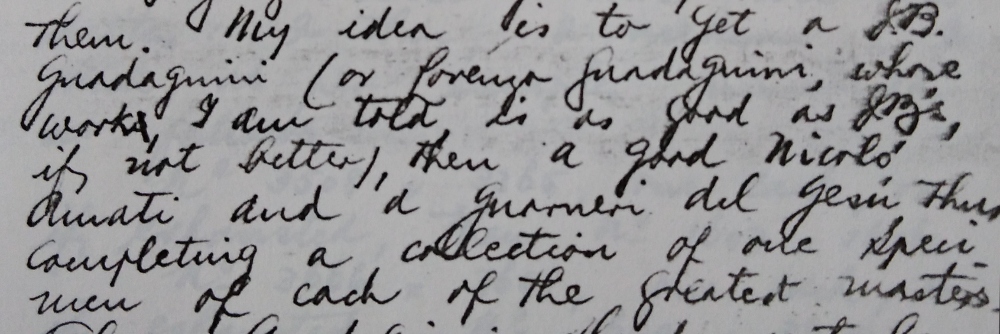 them. My idea is to get a J.B.
Guadagnini (or Lorenzo Guadagnini, whose
work, I am told, is as good as JB's,
if not better), then a good Nicolò
Amati and a Guarneri del Gesù thus
completing a collection of one speci-
men of each of the greatest masters.